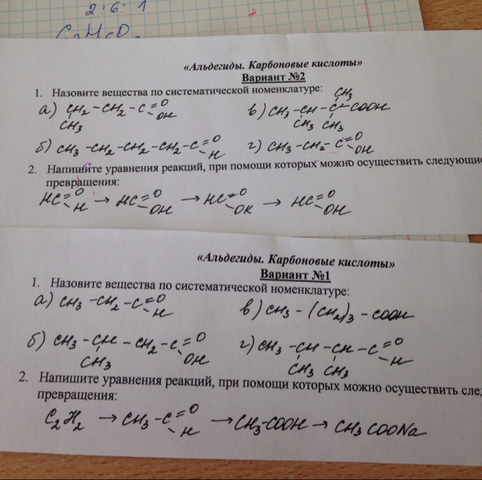 2:6:1
«Альдегиды. Карбоновые кислоты»
Вариант №2
1. Назовите вещества по систематической номенклатуре:
CH3
а) CH2-CH2-C=O в) CH3-CH-C-COOH
OH
CH3 CH3 CH3
б) CH3-CH2-CH2-CH2-C=O г) CH3-CH2-C=O
H OH
2. Напишите уравнения реакций, при помощи которых можно осуществить следующие
превращения:
HC=O → HC=O → HC=O → HC=O
H OH OK OH
«Альдегиды. Карбоновые кислоты»
Вариант №1
1. Назовите вещества по систематической номенклатуре:
а) CH3-CH2-C=O в) CH3-(CH2)3-COOH
H
б) CH3-CH-CH2-C=O г) CH3-CH-CH-C=O
CH3 OH CH3 CH3 H
2. Напишите уравнения реакций, при помощи которых можно осуществить сле
превращения:
C2H2 → CH3-C=O → CH3-COOH → CH3COONa
H